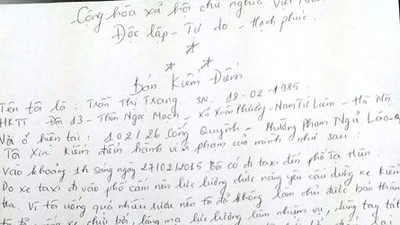 Cộng hòa xã hội chủ nghĩa Việt
Độc lập - Tự do - Hạnh phúc.
Bản Kiểm Điểm
Tên tôi là : Trần Thị Trang SN: 18-02-1985.
HKTT Đội 13 - Thôn Ngọc Mạch - Xã Xuân Phương - Nam Từ Liêm - Hà Nội
Nơi ở hiện tại : 102/26 Cống Quỳnh - Phường Phạm Ngũ Lão - Q
Tôi xin kiểm điểm hành vi vi phạm của mình như sau :
Vào khoảng 1h sáng ngày 27/02/2015 tôi có đi taxi đến phố Tạ Hiện.
Do xe taxi đi vào phố cấm nên lực lượng chức năng yêu cầu dừng xe kiểm
tra. Vì tôi uống quá nhiều rượu nên tôi đã không làm chủ được bản thân
lực lượng làm nhiệm vụ, dùng tay tát